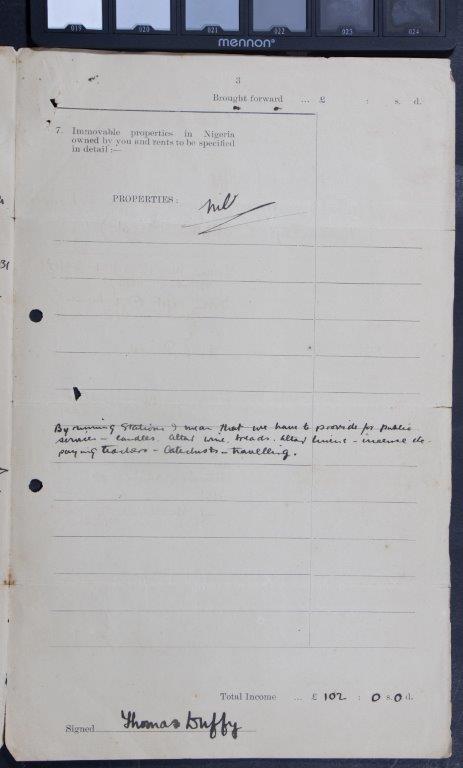 019 020 021 022 023 024
mennon
3
Brought forward ... £ : s. d.
7. Immovable properties in Nigeria
owned by you and rents to be specified
in detail :—
PROPERTIES :
nil
31
By running Stations I mean that we have to provide for public
services - candles, altar wine, breads, altar linens - incense etc
paying teachers - Catechists - travelling.
Total Income ... £ 102 : 0 s. 0 d.
Signed Thomas Duffy